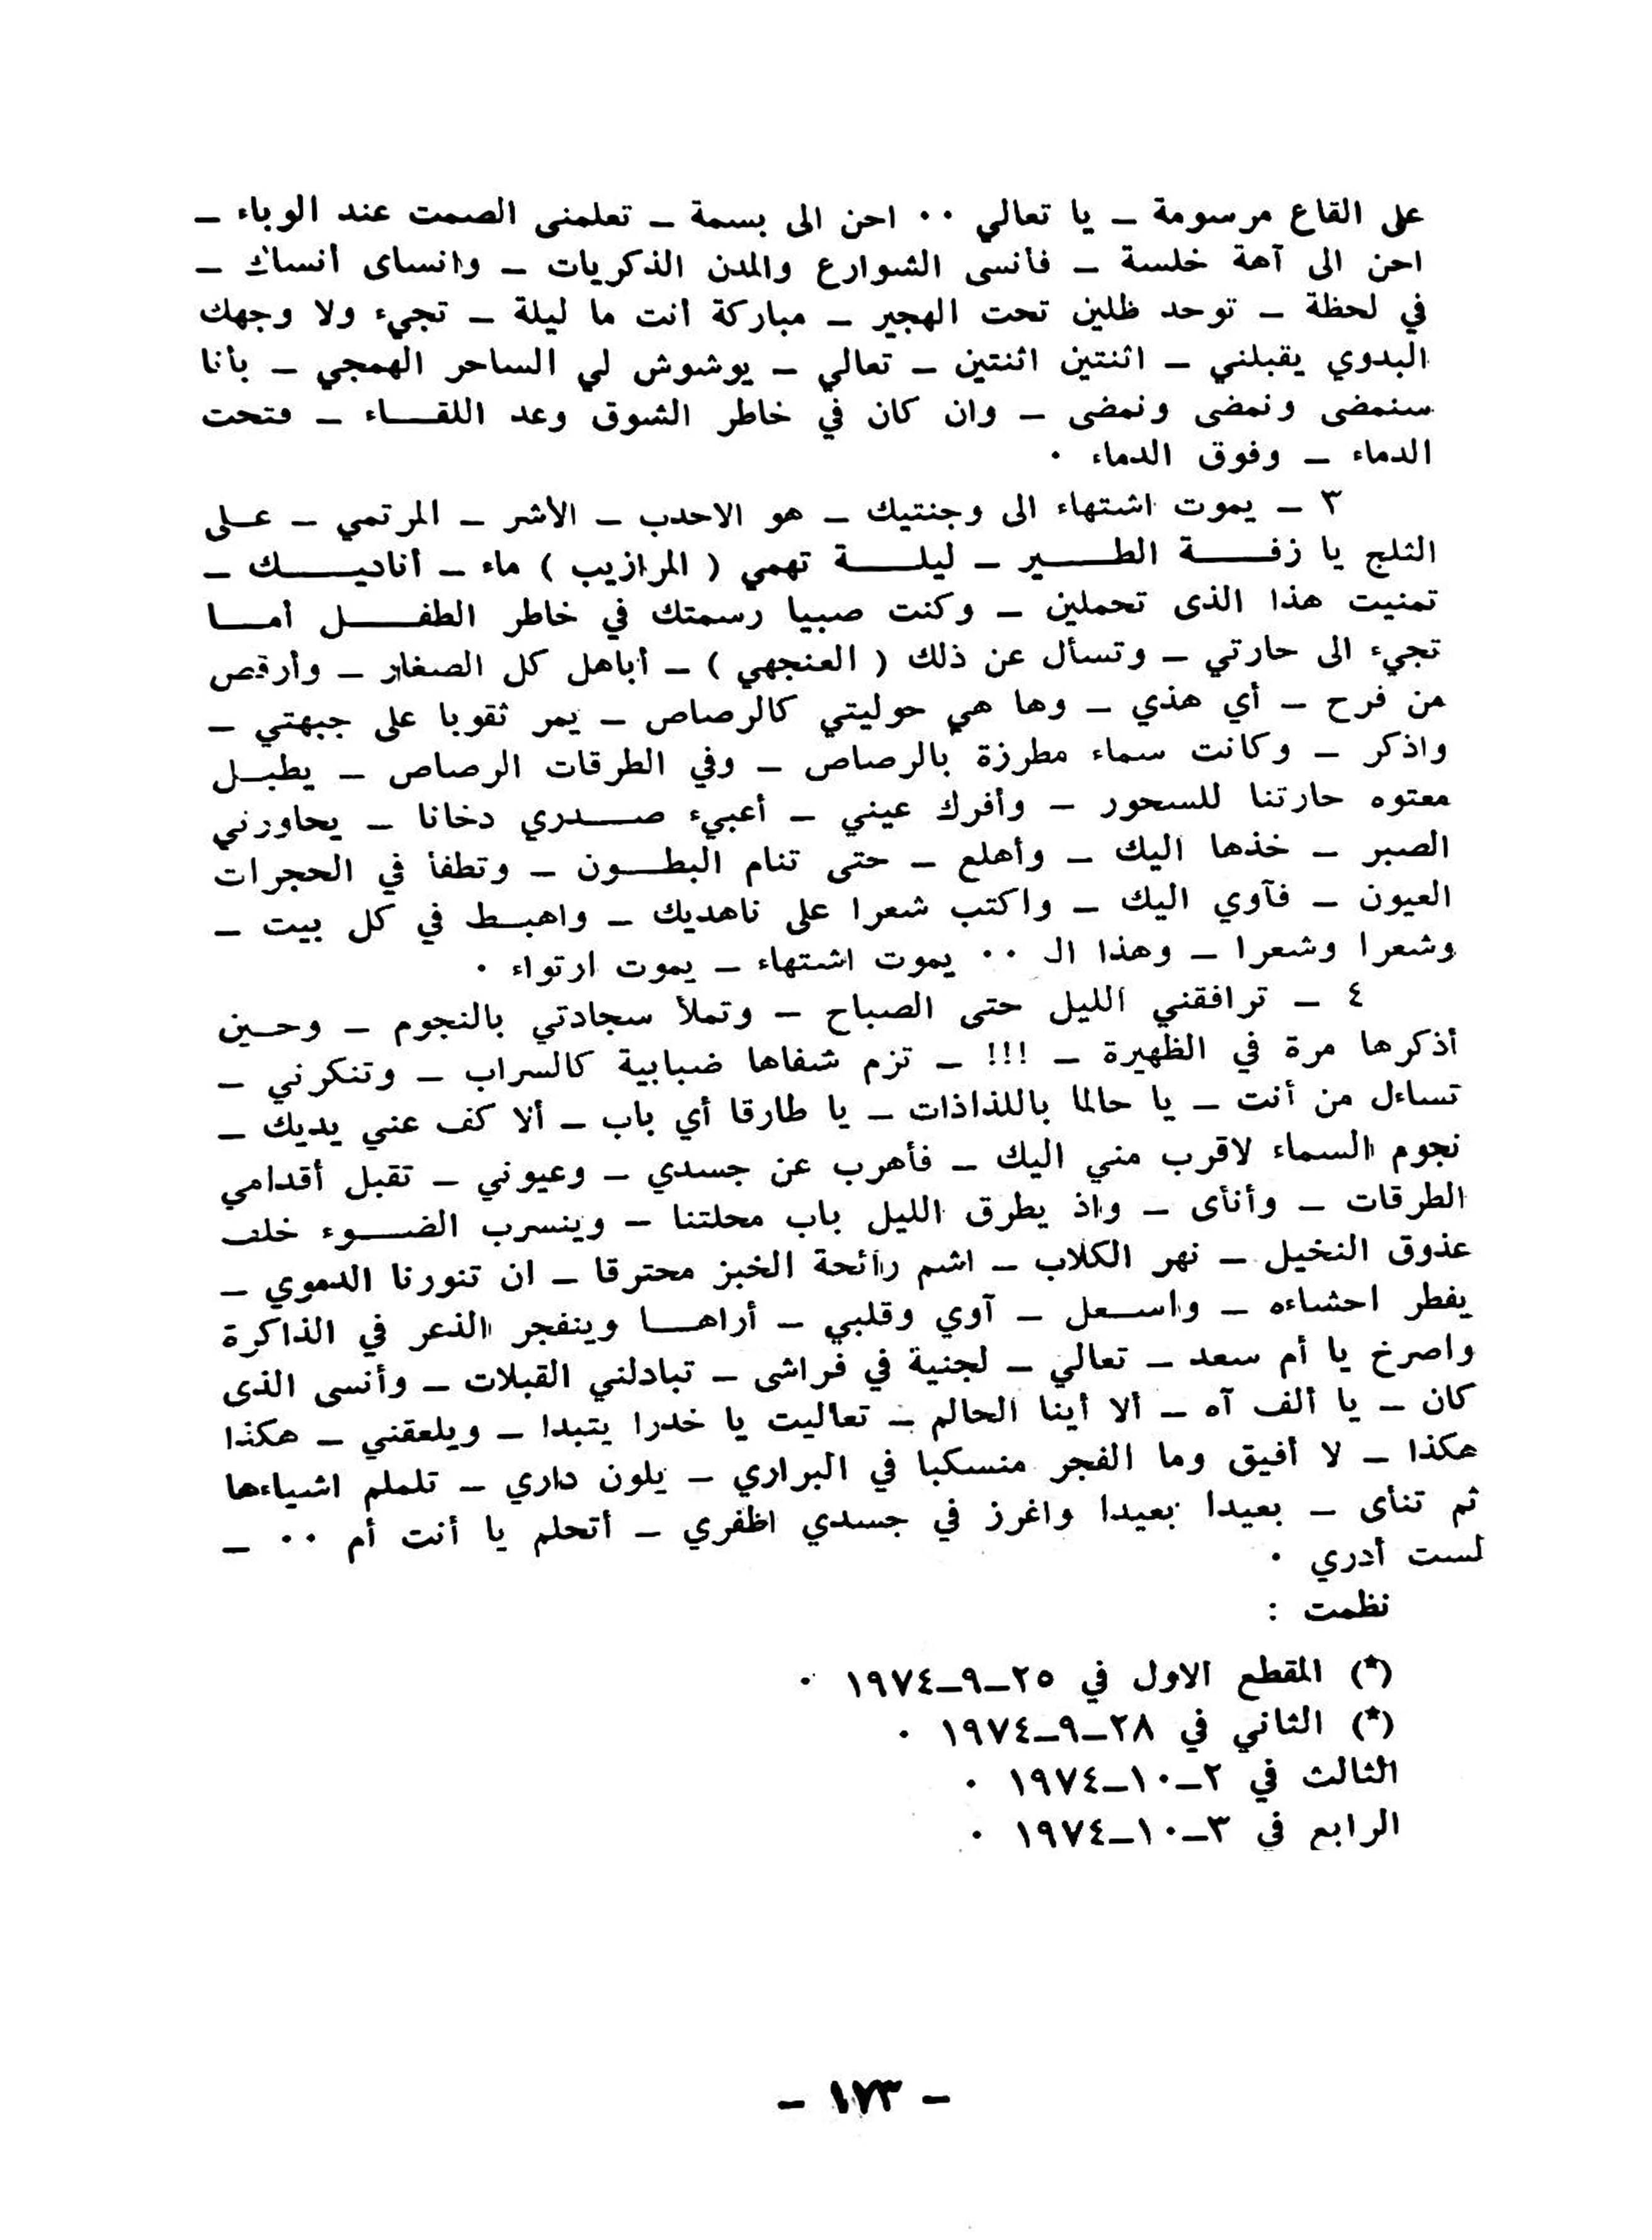 على القاع مرسومة ــ يا تعالي ٠٠ احن الى بسمة ــ تعلمنى الصمت عند الوباء ــ
احن الى آهة خلسة ــ فأنسى الشوارع والمدن الذكريات ــ وانساى أنساك ــ
في لحظة ــ توحد ظلين تحت الهجير ــ مباركة أنت ما ليلة ــ تجيء ولا وجهك
البدوي يقبلني ــ اثنتين اثنتين ــ تعالي ــ يوشوش لي الساحر الهمجي ــ بأنا
سنمضى ونمضى ونمضى ــ وان كان في خاطر الشوق وعد اللقـــاء ــ فتحت
الدماء ــ وفوق الدماء ٠
٣ ــ يموت اشتهاء الى وجنتيك ــ هو الاحدب ــ الأشر ــ المرتمي ــ عـلى
الثلج يا زفـــــة الطـــــير ــ ليلـــــة تهمي ( المرازيب ) ماء ــ أناديـــــك ــ
تمنيت هذا الذى تحملين ــ وكنت صبيا رسمتك في خاطر الطفـــــل أمـــا
تجيء الى حارتي ــ وتسأل عن ذلك ( العنجهي ) ــ أباهل كل الصغار ــ وأرقص
من فرح ــ أي هذي ــ وها هي حوليتي كالرصاص ــ يمر ثقوبا على جبهتي ــ
واذكر ــ وكانت سماء مطرزة بالرصاص ــ وفي الطرقات الرصاص ــ يطبـل
معتوه حارتنا للسحور ــ وأفرك عيني ــ أعبيء صـــدري دخانا ــ يحاورني
الصبر ــ خذها اليك ــ وأهلع ــ حتى تنام البطـــون ــ وتطفأ في الحجرات
العيون ــ فآوي اليك ــ واكتب شعرا على ناهديك ــ واهبـط في كل بيت ــ
وشعرا وشعرا ــ وهذا الـ ٠٠ يموت اشتهاء ــ يموت ارتواء ٠
٤ ــ ترافقني الليل حتى الصباح ــ وتملأ سجادتي بالنجوم ــ وحـين
أذكرها مرة في الظهيرة ــ !!! ــ تزم شفاها ضبابية كالسراب ــ وتنكرني ــ
تساءل من أنت ــ يا حالما باللذاذات ــ يا طارقا أي باب ــ ألا كف عني يديك ــ
نجوم السماء لاقرب مني اليك ــ فأهرب عن جسدي ــ وعيوني ــ تقبل أقدامي
الطرقات ــ وأنأى ــ واذ يطرق الليل باب محلتنا ــ وينسرب الضـــوء خلف
عذوق النخيل ــ نهر الكلاب ــ اشم رائحة الخبز محترقا ــ ان تنورنا الدموي ــ
يفطر احشاءه ــ واسـعل ــ آوي وقلبي ــ أراهـــا وينفجر الذعر في الذاكرة
واصرخ يا أم سعد ــ تعالي ــ لجنية في فراشى ــ تبادلني القبلات ــ وأنسى الذى
كان ــ يا ألف آه ــ ألا أينا الحالم ــ تعاليت يا خدرا يتبدا ــ ويلعقني ــ هكذا
هكذا ــ لا أفيق وما الفجر منسكبا في البراري ــ يلون داري ــ تلملم اشياءها
ثم تنأى ــ بعيدا بعيدا واغرز في جسدي اظفري ــ أتحلم يا أنت أم ٠٠ ــ
لست أدري ٠
نظمت :
(*) المقطع الاول في ٢٥ــ٩ــ١٩٧٤ ٠
(*) الثاني في ٢٨ــ٩ــ١٩٧٤ ٠
الثالث في ٢ــ١٠ــ١٩٧٤ ٠
الرابع في ٣ــ١٠ــ١٩٧٤ ٠
– ١٧٣ –